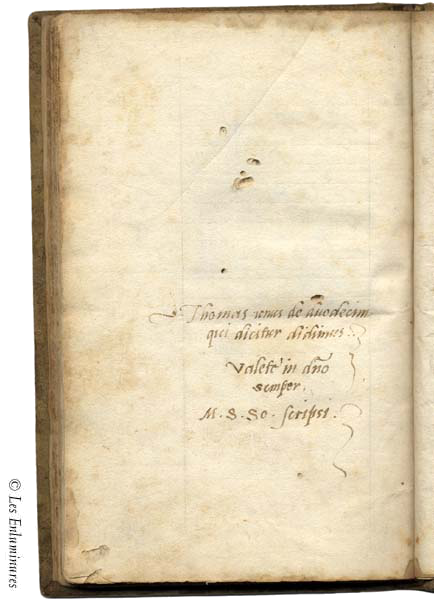 Thomas unus de duodecim
qui dicitur didimus.
Valete in dño
semper.
M. S. So. scripsi.
© Les Enluminures